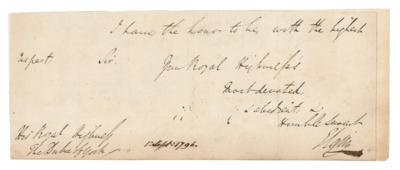 I have the honor to be, with the highest
respect Sir. Your Royal Highness's
most devoted
& obedient &
Humble Servant
Elgin
His Royal Highness
The Duke of York
1796